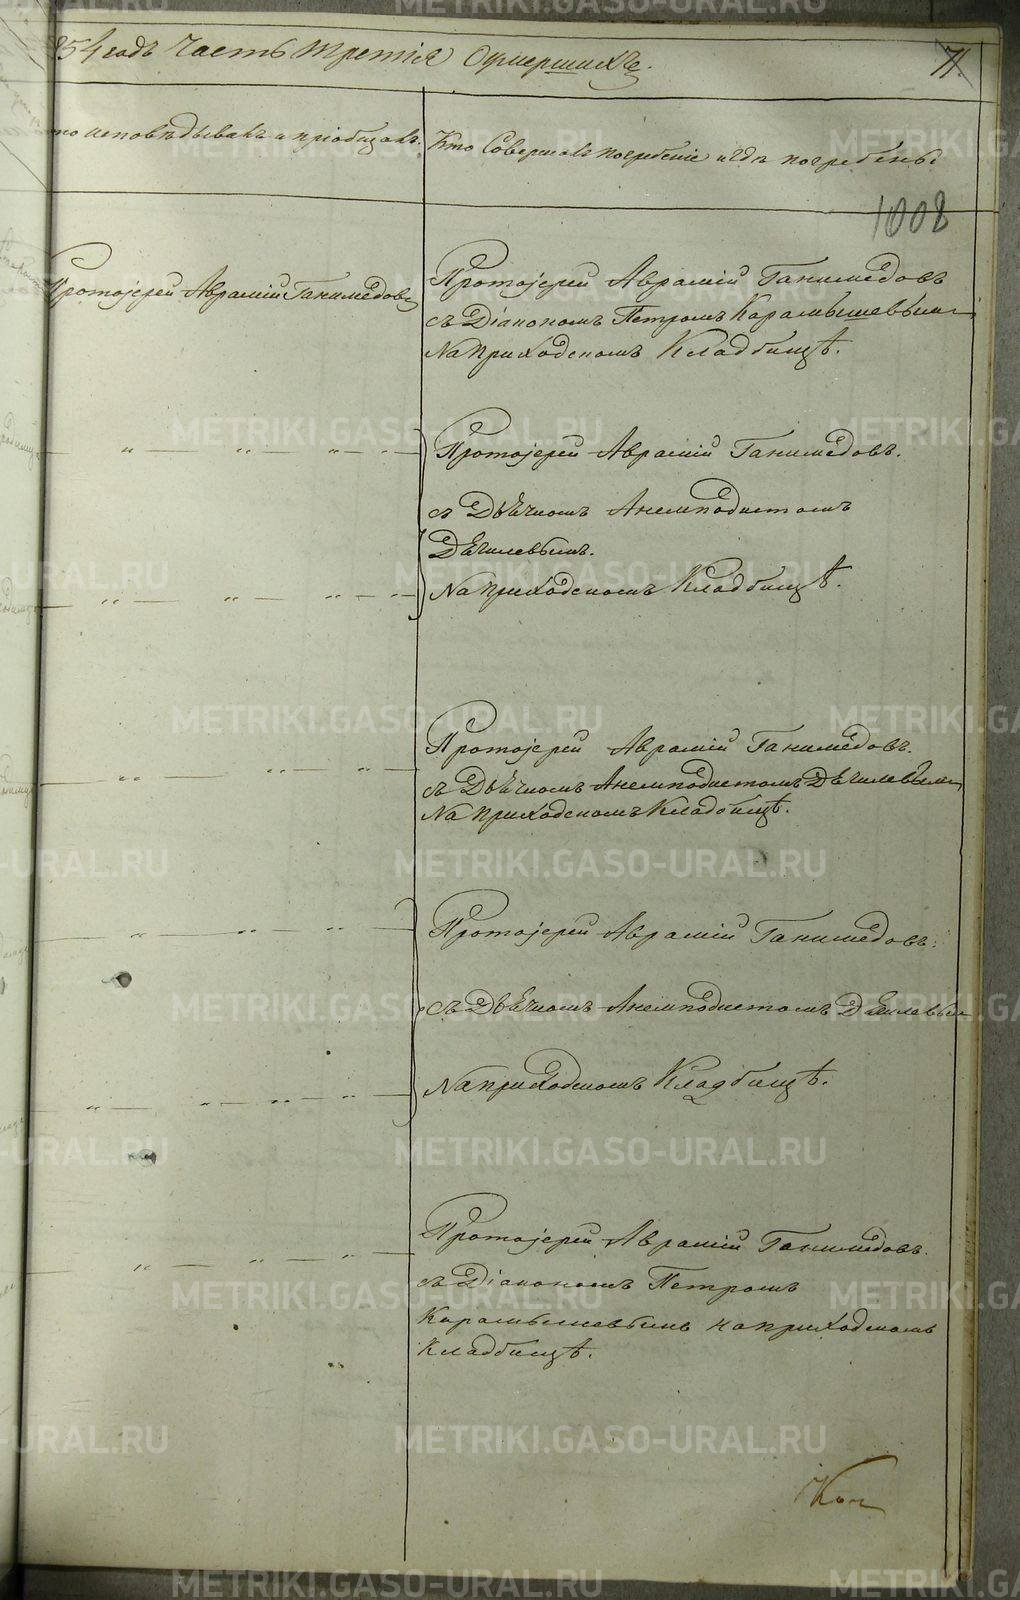 854 годъ Часть Третія Оумершихъ.
71.
то исповѣдывалъ и пріобщалъ.
Кто Совершалъ погребеніе и гдѣ погребены
1008
Протоіерей Аврамій Ганимедовъ
Протоіерей Аврамій Ганимедовъ
съ Діакономъ Петромъ Карамышевымъ
На Приходскомъ Кладбищѣ.
Протоіерей Аврамій Ганимедовъ.
съ Дьячкомъ Анемподистомъ
На Приходскомъ Кладбищѣ.
Протоіерей Аврамій Ганимедовъ.
съ Дьячкомъ Анемподистомъ
На приходскомъ Кладбищѣ.
Протоіерей Аврамій Ганимедовъ.
съ Дьячкомъ Анемподистомъ
На приходскомъ Кладбищѣ.
Протоіерей Аврамій Ганимедовъ.
съ Діакономъ Петромъ
Карамышевымъ на приходскомъ
Кладбищѣ.
METRIKI.GASO-URAL.RU